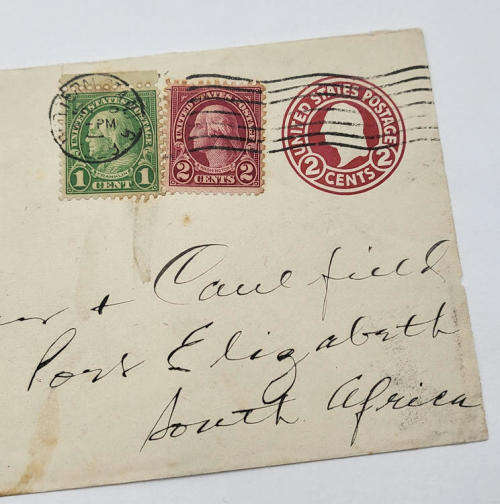 UNITED STATES POSTAGE
FRANKLIN
1 CENT 1
UNITED STATES POSTAGE
WASHINGTON
2 CENTS 2
UNITED STATES POSTAGE
2 CENTS 2
PM
+ Caulfield
Port Elizabeth
South Africa